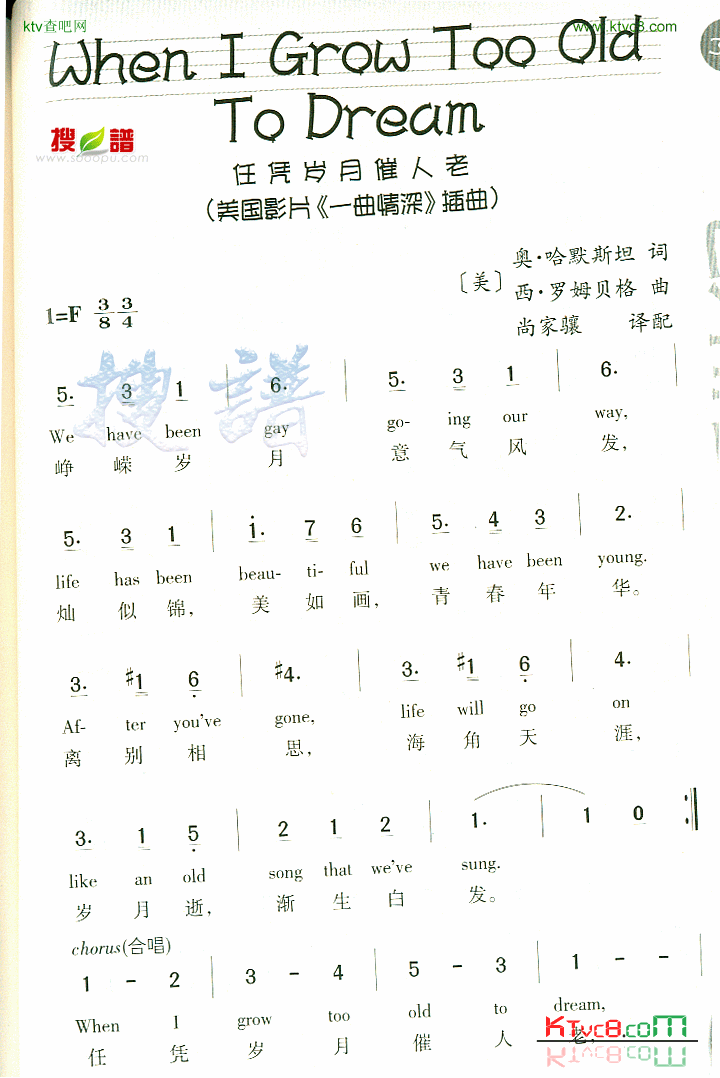 ktv查吧网 www.ktvc8.com
When I Grow Too Old
To Dream
搜谱
www.sooopu.com
任凭岁月催人老
(美国影片《一曲情深》插曲)
奥·哈默斯坦 词
〔美〕西·罗姆贝格 曲
尚家骧 译配
1=F 3/8 3/4
搜譜
5. 3 1 | 6. | 5. 3 1 | 6. |
We have been gay go- ing our way,
峥嵘岁月意气风发,
5. 3 1 | i. 7 6 | 5. 4 3 | 2. |
life has been beau- ti- ful we have been young.
灿似锦,美如画,青春年华。
3. #1 6 | #4. | 3. #1 6 | 4. |
Af- ter you've gone, life will go on
离别相思,海角天涯,
3. 1 5 | 2 1 2 | 1. | 1 0 :||
like an old song that we've sung.
岁月逝,渐生白发。
chorus(合唱)
1 - 2 | 3 - 4 | 5 - 3 | 1 - - |
When I grow too old to dream,
任凭岁月催人老,
KTvc8.com